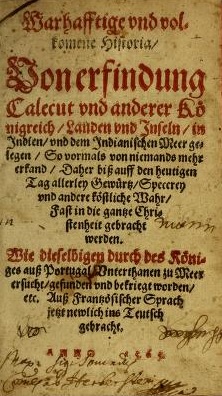 Warhafftige vnd vol-
komene Historia /
Von erfindung
Calecut vnd anderer Kö
nigreich / Landen vnd Inseln / in
Indien / vnd dem Indianischen Meer ge-
legen / So vormals von niemands mehr
erkand / Daher biß auff den heutigen
Tag allerley Gewürtz / Specerey
vnd andere köstliche Wahr /
Fast in die gantze Chri-
stenheit gebracht
werden.
Wie dieselbigen durch des Köni-
ges auß Portugal Vnterthanen zu Meer
ersucht / gefunden vnd bekriegt worden /
etc. Auß Frantzösischer Sprach
jetzt newlich ins Teutsch
gebracht.
ANNO